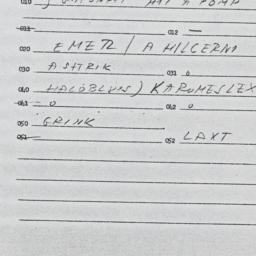 010
011 012 —
020 EMETR / A HILCERNO
030 ASTRIK 031 0
040 HALOBLUNS) KAROMESLEX
041 = 0 042 0
050 GRINK
051 052 LAXT